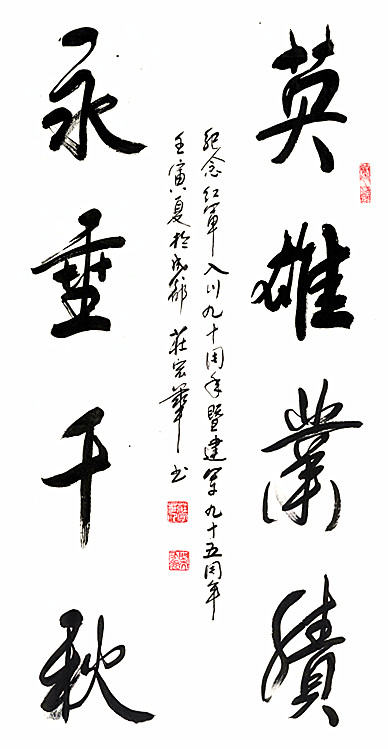 英雄業績
永垂千秋
紀念紅軍入川九十周年暨建軍九十五周年
壬寅夏於成都 莊宏華書